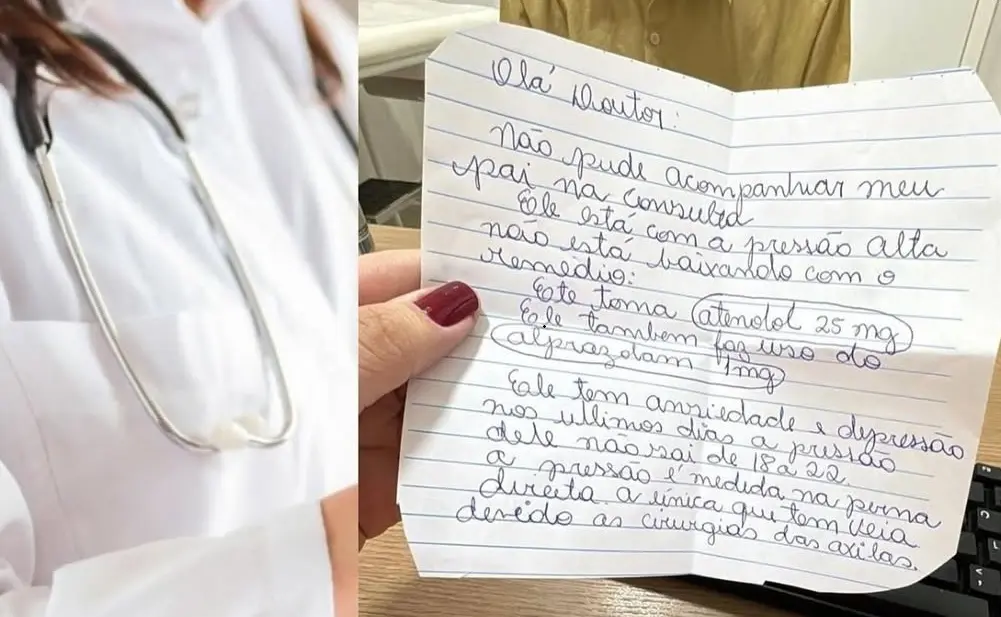 Olá Doutor:
Não pude acompanhar meu
pai na consulta
Ele está com a pressão alta
não está baixando com o
remédio:
Ele toma atenolol 25 mg
Ele também faz uso do
alprazolam 1mg
Ele tem anxiedade e depressão
nos ultimos dias a pressão
dele não sai de 18 a 22
a pressão é medida na perna
direita a única que tem veia
devido as cirurgias das axilas.